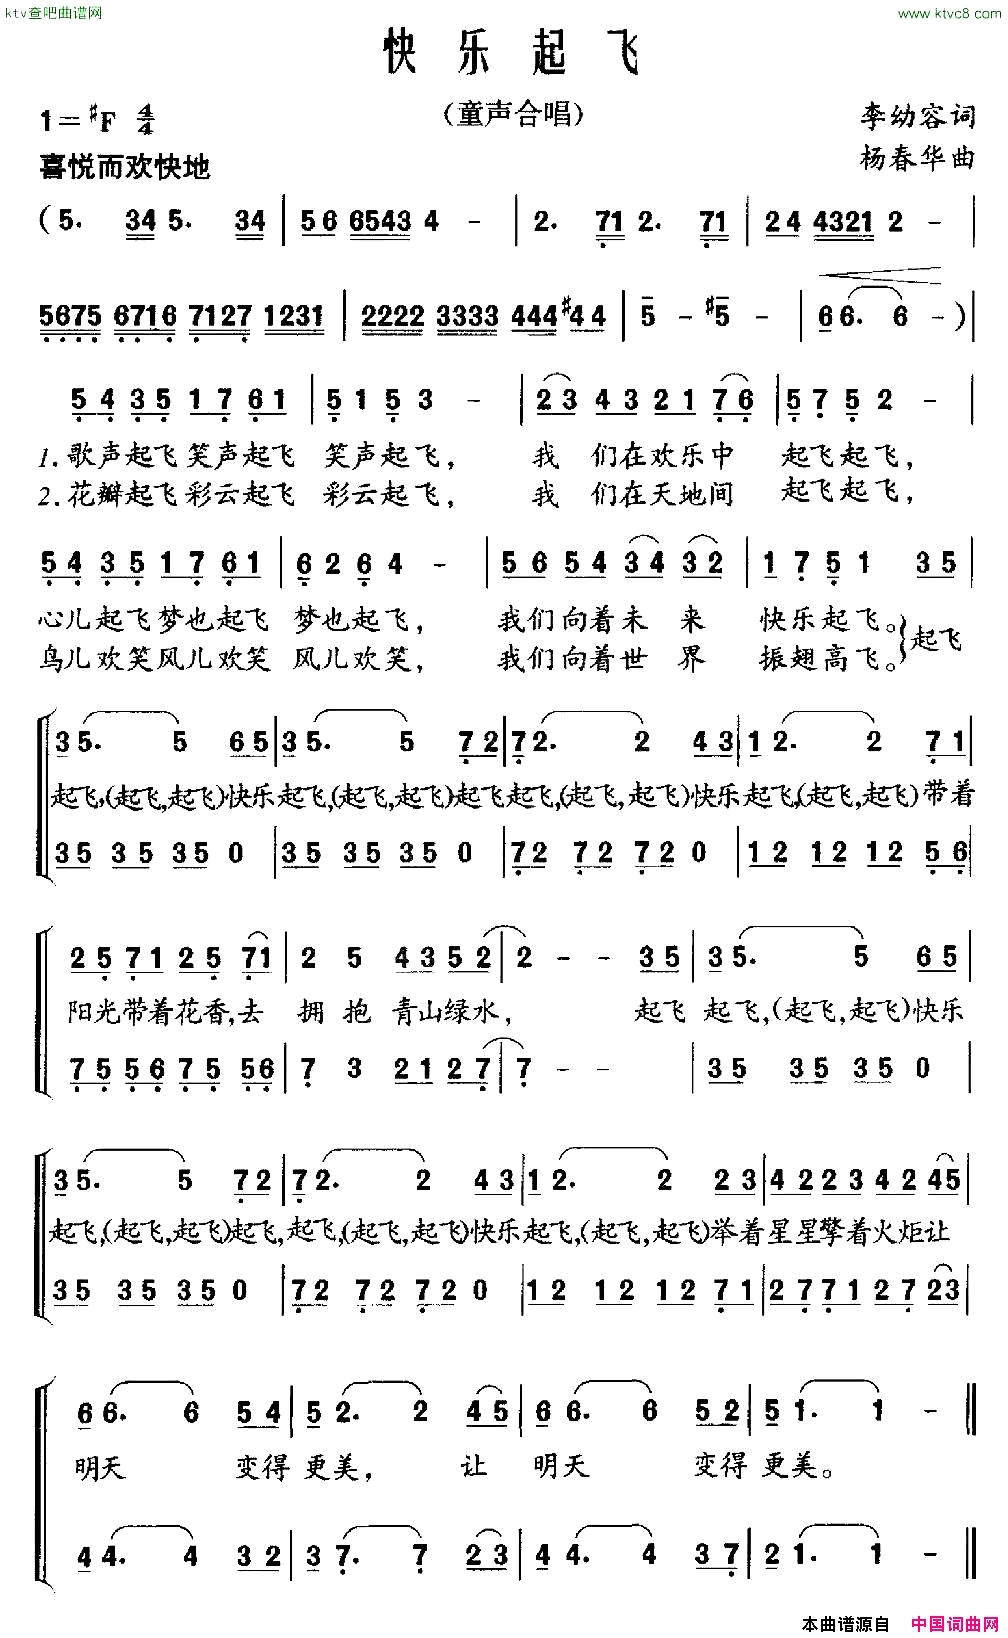 ktv查吧曲谱网
www.ktvc8.com
快乐起飞
(童声合唱)
1=#F 4/4
李幼容词
杨春华曲
喜悦而欢快地
(5. 34 5. 34 | 56 6543 4 - | 2. 71 2. 71 | 24 4321 2 - |
5675 6716 7127 1231 | 2222 3333 444#4 4 | 5 - #5 - | 6 6. 6 -) |
5 4 3 5 1 7 6 1 | 5 1 5 3 - | 2 3 4 3 2 1 7 6 | 5 7 5 2 - |
1.歌声起飞笑声起飞 笑声起飞， 我 们在欢乐中 起飞起飞，
2.花瓣起飞彩云起飞 彩云起飞， 我 们在天地间 起飞起飞，
5 4 3 5 1 7 6 1 | 6 2 6 4 - | 5 6 5 4 3 4 3 2 | 1 7 5 1 3 5 |
心儿起飞梦也起飞 梦也起飞， 我们向着未 来 快乐起飞。
起飞
鸟儿欢笑风儿欢笑 风儿欢笑， 我们向着世 界 振翅高飞。
3 5. 5 6 5 | 3 5. 5 7 2 | 7 2. 2 4 3 | 1 2. 2 7 1 |
起飞,(起飞,起飞)快乐起飞,(起飞,起飞)起飞起飞,(起飞,起飞)快乐起飞,(起飞,起飞)带着
3 5 3 5 3 5 0 | 3 5 3 5 3 5 0 | 7 2 7 2 7 2 0 | 1 2 1 2 1 2 5 6 |
2 5 7 1 2 5 7 1 | 2 5 4 3 5 2 | 2 - - 3 5 | 3 5. 5 6 5 |
阳光带着花香,去 拥 抱 青山绿水， 起飞 起飞,(起飞,起飞)快乐
7 5 5 6 7 5 5 6 | 7 3 2 1 2 7 | 7 - - | 3 5 3 5 3 5 0 |
3 5. 5 7 2 | 7 2. 2 4 3 | 1 2. 2 2 3 | 4 2 2 3 4 2 4 5 |
起飞,(起飞,起飞)起飞,起飞,(起飞,起飞)快乐起飞,(起飞,起飞)举着星星擎着火炬让
3 5 3 5 3 5 0 | 7 2 7 2 7 2 0 | 1 2 1 2 1 2 7 1 | 2 7 7 1 2 7 2 3 |
6 6. 6 5 4 | 5 2. 2 4 5 | 6 6. 6 5 2 | 5 1. 1 - ‖
明天 变得 更美， 让 明天 变得 更美。
4 4. 4 3 2 | 3 7. 7 2 3 | 4 4. 4 3 7 | 2 1. 1 - ‖
本曲谱源自 中国词曲网